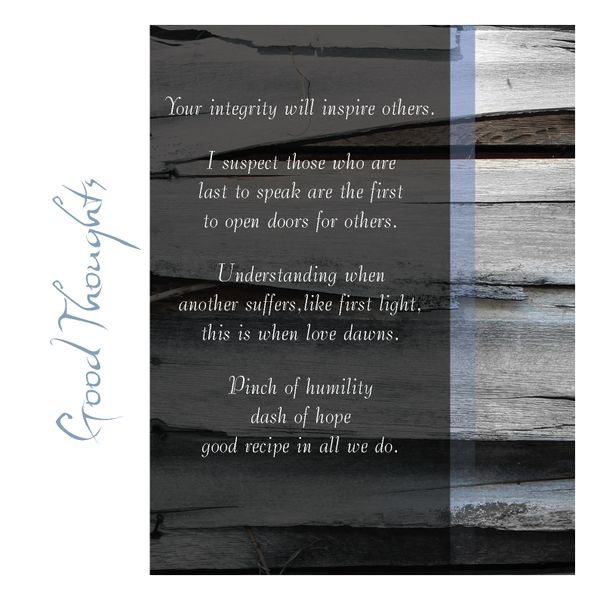 Good Thoughts
Your integrity will inspire others.
I suspect those who are
last to speak are the first
to open doors for others.
Understanding when
another suffers,like first light,
this is when love dawns.
Pinch of humility
dash of hope
good recipe in all we do.